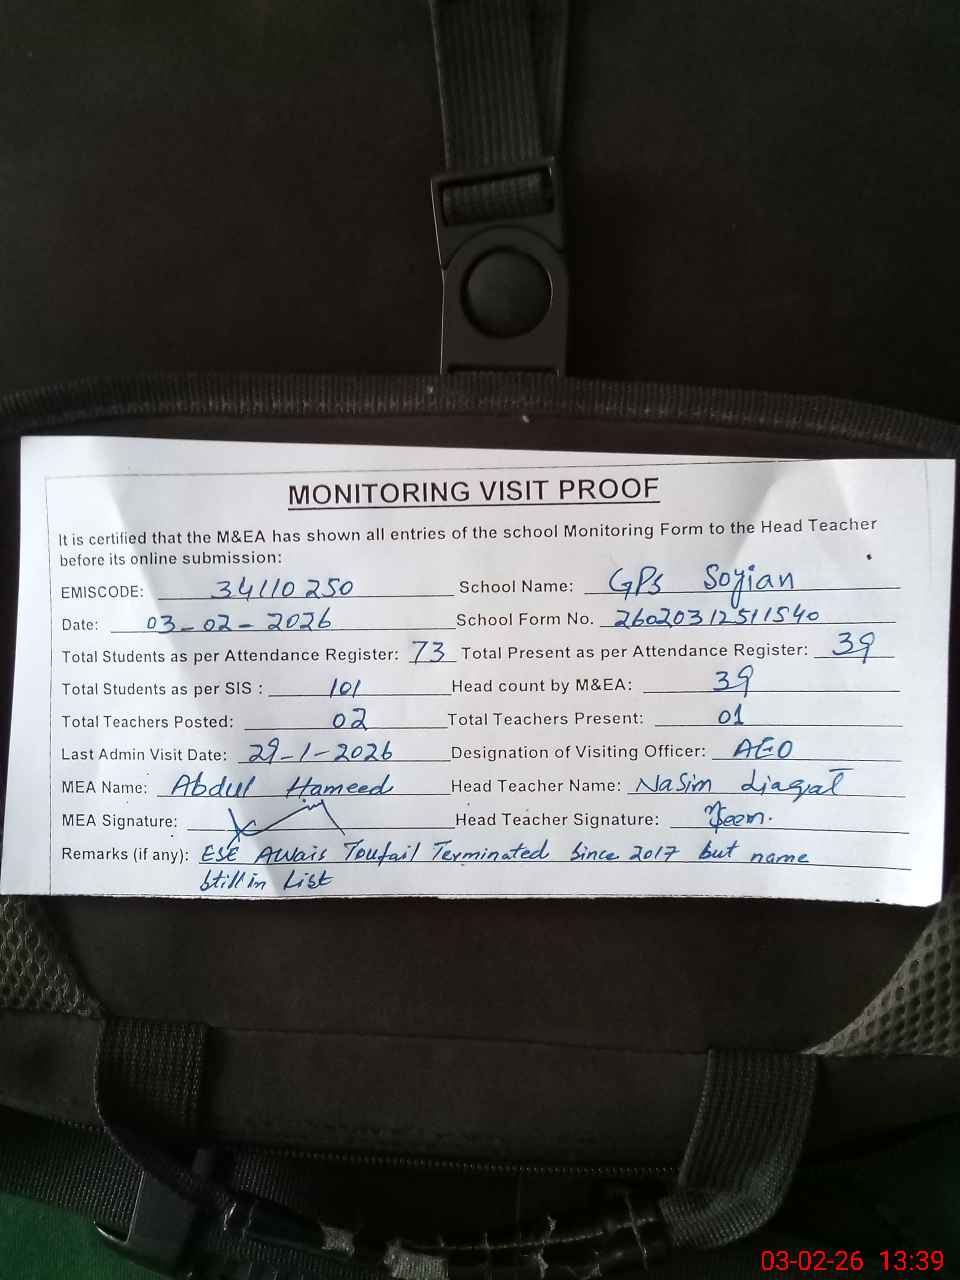 MONITORING VISIT PROOF
It is certified that the M&EA has shown all entries of the school Monitoring Form to the Head Teacher
before its online submission:
EMISCODE: 34110250 School Name: GPS Soyian
Date: 03-02-2026 School Form No. 26020312511540
Total Students as per Attendance Register: 73 Total Present as per Attendance Register: 39
Total Students as per SIS : 101 Head count by M&EA: 39
Total Teachers Posted: 02 Total Teachers Present: 01
Last Admin Visit Date: 29-1-2026 Designation of Visiting Officer: AEO
MEA Name: Abdul Hameed Head Teacher Name: Nasim Liaqat
MEA Signature: Head Teacher Signature:
Remarks (if any): ESE Awais Toufail Terminated Since 2017 but name
still in List
03-02-26 13:39